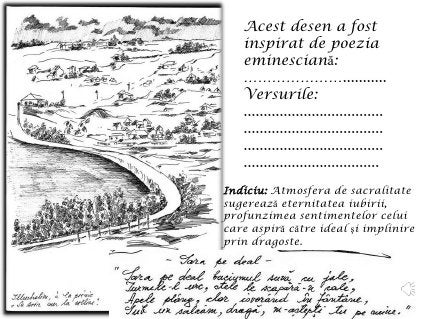 Acest desen a fost
inspirat de poezia
eminesciană:
……………………...........
Versurile:
...................................
...................................
...................................
..................................
Indiciu: Atmosfera de sacralitate
sugerează eternitatea iubirii,
profunzimea sentimentelor celui
care aspiră către ideal și împlinire
prin dragoste.
- Sara pe deal -
"Sara pe deal buciumul sună cu jale,
Turmele-l urc, stele le scapără-n cale,
Apele plâng, clar isvorând în fântâne,
Sub un salcâm, dragă, m-aștepți tu pe mine."
la poezia